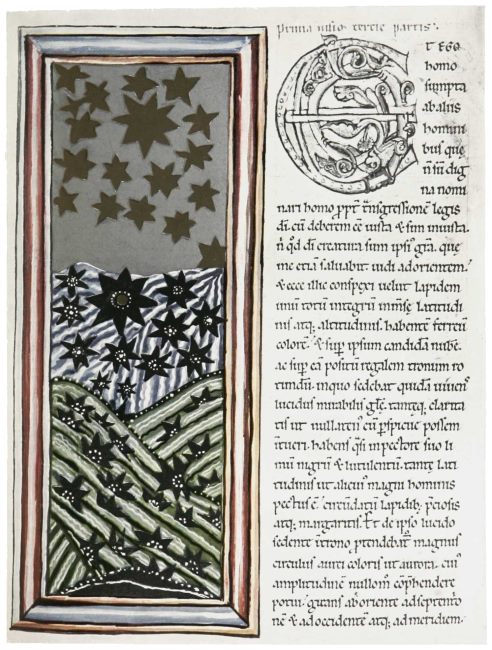 prima uisio tercie partis.
ET EGO
homo
sumpta
ab aliis
homini
bus que
n̄ sũ dig
na nomi
nari homo ꝓpt̄ tͣnsgressionē legis
dī. cũ deberem eē iusta & sum iniusta.
n̄ qd̄ dī creatura sum ipsiꝰ grā. que
me etiā saluabit. uidi ad orientem.
& ecce illic conspexi uelut lapidem
unũ totũ integrũ inm̄se latitudi
nis atq; altitudinis. habentē ferreũ
colorē. & suꝑ ipsum candidā nubē.
ac suꝑ eā positũ regalem tronum ro
tundũ. in quo sedebat quidā uiuens
lucidus mirabilis glē. tanteq; clarita
tis ut nullatenꝰ eũ ꝑspicue possem
intueri. habens qͣsi in pectore suo li
mũ nigrũ & lutulentũ. tantę lati
tudinis ut alicuiꝰ magni hominis
pectus ē. circũdatũ lapidib; p̄ciosis
atq; margaritis. Et de ipso lucido
sedente ī trono ꝓtendebat᷑ magnus
circulus aurei coloris ut aurora. cuiꝰ
amplitudinē nullom̄ cōp̄hendere
potui. girans ab oriente ad septentrio
nē & ad occidentē atq; ad meridiem.